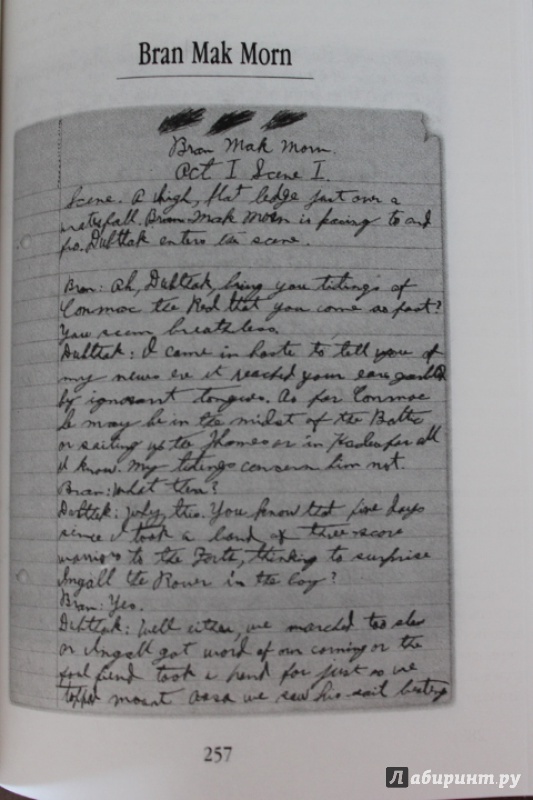 Bran Mak Morn
Bran Mak Morn.
Act I Scene I.
Scene. A high, flat ledge just over a
waterfall. Bran Mak Morn is pacing to and
fro. Dubtlak enters the scene.
Bran: Ah, Dubtlak, bring you tidings of
Conmac the Red that you come so fast?
You seem breathless.
Dubtlak: I came in haste to tell you of
my news ere it reached your ears garbled
by ignorant tongues. As for Conmac
he may be in the midst of the Baltic
or sailing up the Thames or in Hades for all
I know. My tidings concern him not.
Bran: What then?
Dubtlak: Why, this. You know that five days
since I took a band of three-score
warriors to the Forth, thinking to surprise
Angall the Rover in the bay?
Bran: Yes.
Dubtlak: Well either, we marched too slow
or Angall got word of our coming or the
foul fiend took a hand for just as we
topped we saw his sail beating
257
Лабиринт.ру